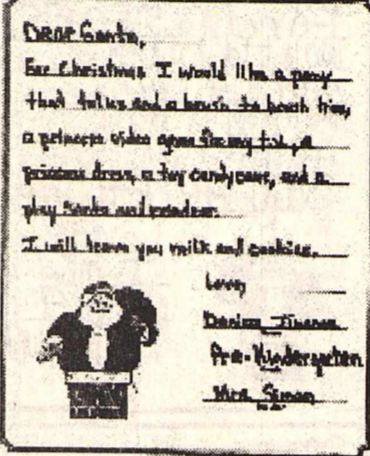 Dear Santa,
For Christmas I would like a pony
that talks and a brush to brush him,
a princess video game for my t.v., a
princess dress, a toy candy cane, and a
play Santa and reindeer.
I will leave you milk and cookies.
Love,
Jimenez
Pre-Kindergarten
Mrs. Simon